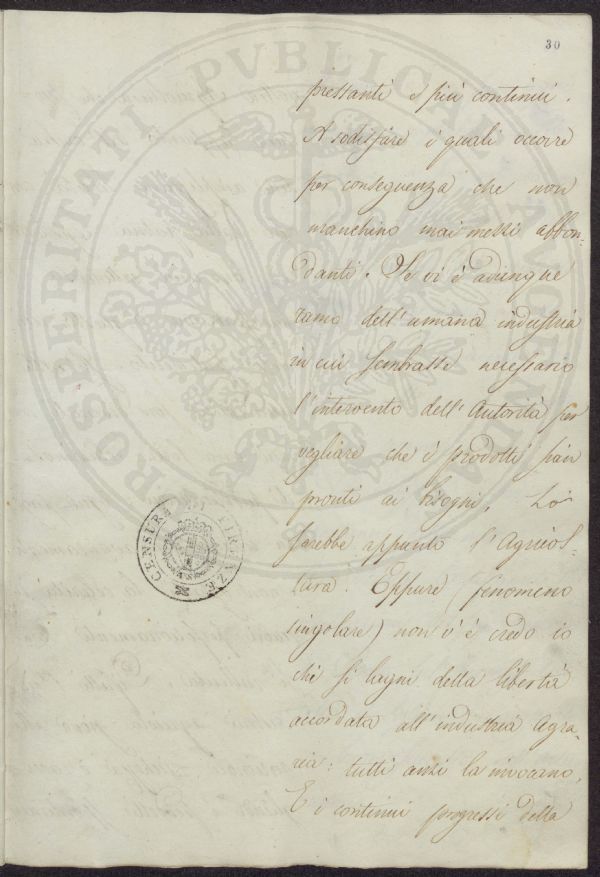 30
pressanti e più continui.
A sodisfare i quali occorre
per conseguenza che non
manchino mai mezzi abbon-
danti. Se vi è adunque
ramo dell'umana industria
in cui sembrasse necessario
l'intervento dell'Autorità per
vegliare che i prodotti sian
pronti ai bisogni, Lo
sarebbe appunto l'Agricol-
tura. Eppure (fenomeno
singolare) non v'è credo io
chi si lagni della libertà
accordata all'industria Agra-
ria: tutti anzi la invocano,
E i continui progressi della
CENSURA DI FIRENZE
PROSPERITATI PUBLICAE